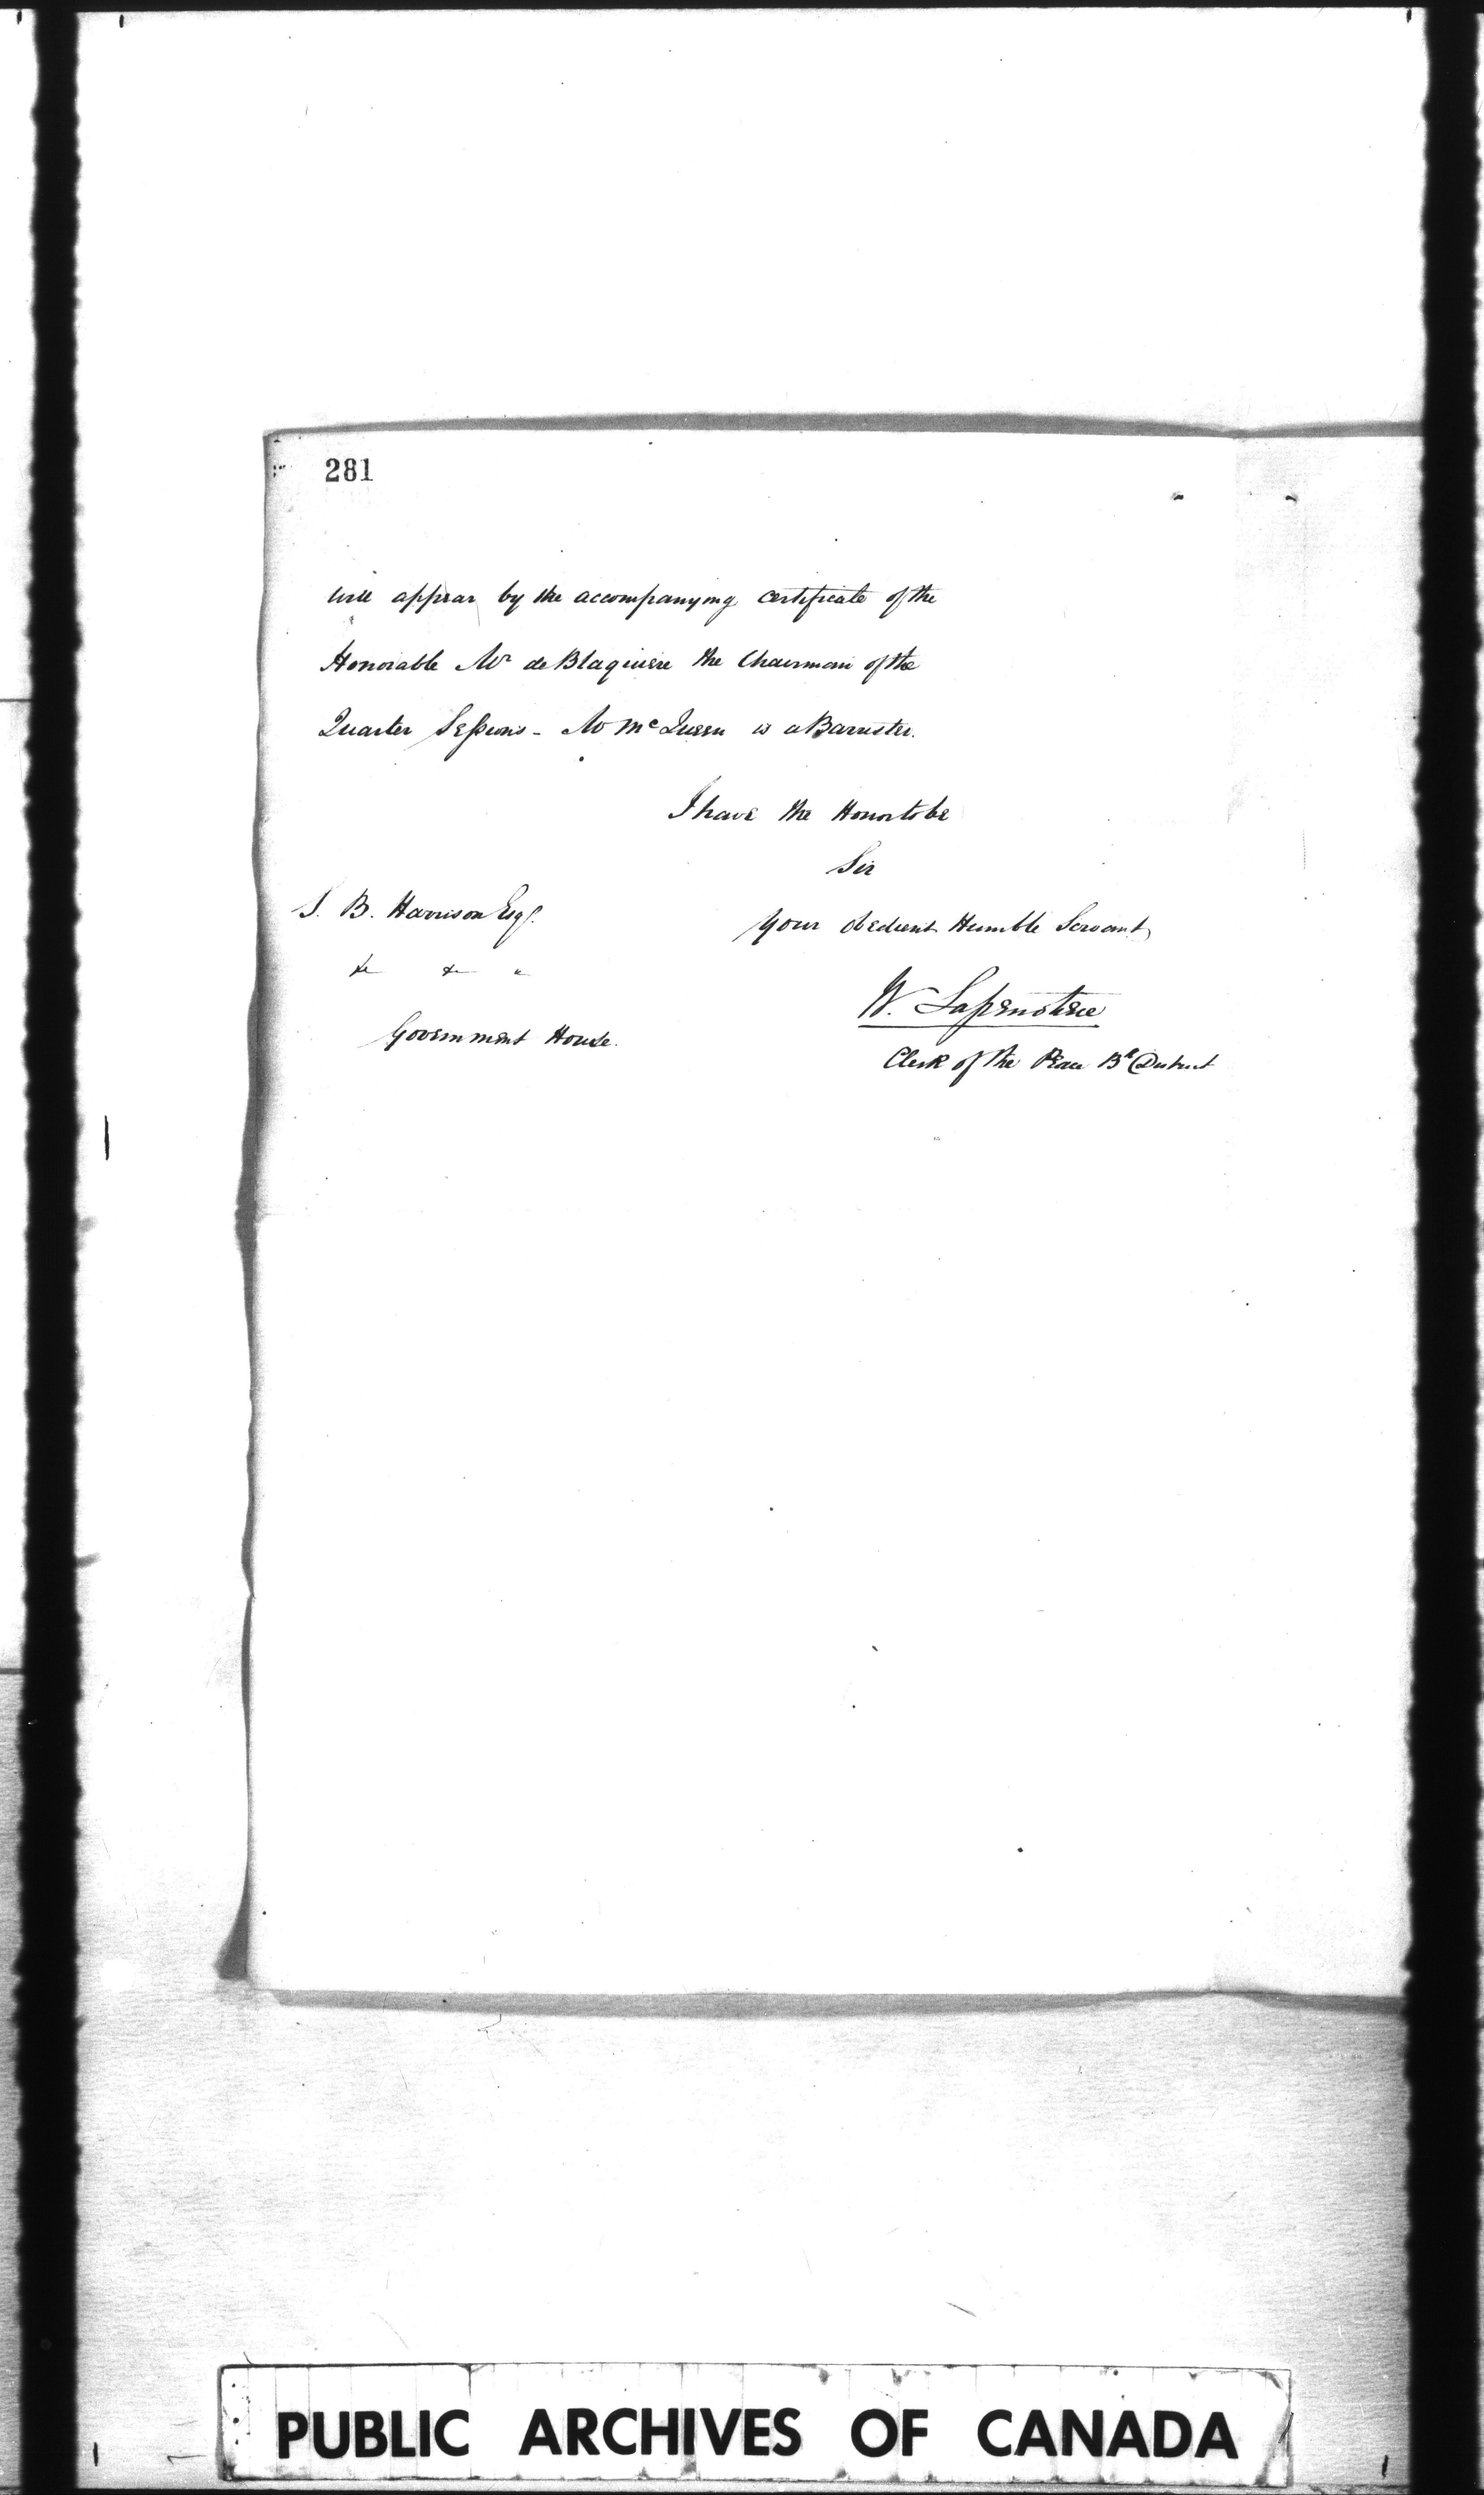 281
will appear by the accompanying certificate of the
Honorable Mr de Blaquiere the Chairman of the
Quarter Sessions - Mr McQueen is a Barrister.
I have the Honor to be
Sir
Your obedient Humble Servant
S. B. Harrison Esqr.
&c &c "
Government House.
W. Lapenotiere
Clerk of the Peace Bk District
PUBLIC ARCHIVES OF CANADA